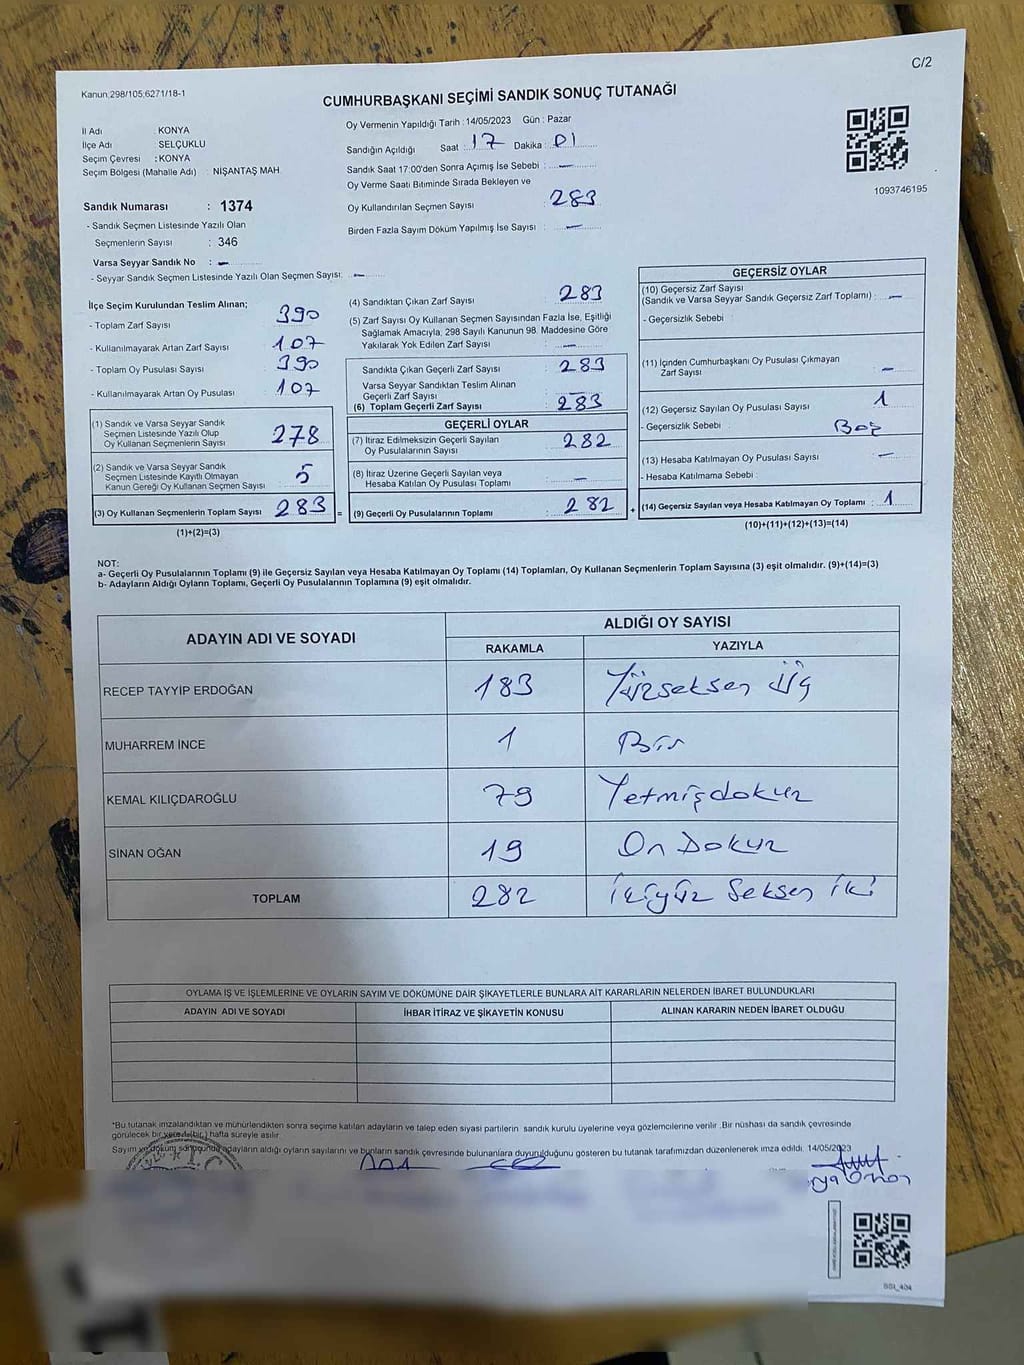 C/2
Kanun:298/105;6271/18-1
CUMHURBAŞKANI SEÇİMİ SANDIK SONUÇ TUTANAĞI
İl Adı : KONYA
İlçe Adı : SELÇUKLU
Seçim Çevresi : KONYA
Seçim Bölgesi (Mahalle Adı) : NİŞANTAŞ MAH.
Sandık Numarası : 1374
- Sandık Seçmen Listesinde Yazılı Olan
Seçmenlerin Sayısı : 346
Varsa Seyyar Sandık No : –
- Seyyar Sandık Seçmen Listesinde Yazılı Olan Seçmen Sayısı: –
Oy Vermenin Yapıldığı Tarih : 14/05/2023 Gün : Pazar
Sandığın Açıldığı Saat : 17 Dakika : 01
Sandık Saat 17:00'den Sonra Açımış İse Sebebi : –
Oy Verme Saati Bitiminde Sırada Bekleyen ve
Oy Kullandırılan Seçmen Sayısı : 283
Birden Fazla Sayım Döküm Yapılmış İse Sayısı : –
1093746195
İlçe Seçim Kurulundan Teslim Alınan;
- Toplam Zarf Sayısı 390
- Kullanılmayarak Artan Zarf Sayısı 107
- Toplam Oy Pusulası Sayısı 390
- Kullanılmayarak Artan Oy Pusulası 107
(1) Sandık ve Varsa Seyyar Sandık
Seçmen Listesinde Yazılı Olup
Oy Kullanan Seçmenlerin Sayısı 278
(2) Sandık ve Varsa Seyyar Sandık
Seçmen Listesinde Kayıtlı Olmayan
Kanun Gereği Oy Kullanan Seçmen Sayısı 5
(3) Oy Kullanan Seçmenlerin Toplam Sayısı 283 =
(1)+(2)=(3)
(4) Sandıktan Çıkan Zarf Sayısı : 283
(5) Zarf Sayısı Oy Kullanan Seçmen Sayısından Fazla İse, Eşitliği
Sağlamak Amacıyla, 298 Sayılı Kanunun 98. Maddesine Göre
Yakılarak Yok Edilen Zarf Sayısı : –
Sandıkta Çıkan Geçerli Zarf Sayısı : 283
Varsa Seyyar Sandıktan Teslim Alınan
Geçerli Zarf Sayısı : –
(6) Toplam Geçerli Zarf Sayısı : 283
GEÇERLİ OYLAR
(7) İtiraz Edilmeksizin Geçerli Sayılan
Oy Pusulasının Sayısı : 282
(8) İtiraz Üzerine Geçerli Sayılan veya
Hesaba Katılan Oy Pusulası Toplamı : –
(9) Geçerli Oy Pusulalarının Toplamı : 282 +
GEÇERSİZ OYLAR
(10) Geçersiz Zarf Sayısı
(Sandık ve Varsa Seyyar Sandık Geçersiz Zarf Toplamı) : –
- Geçersizlik Sebebi :
(11) İçinden Cumhurbaşkanı Oy Pusulası Çıkmayan
Zarf Sayısı : –
(12) Geçersiz Sayılan Oy Pusulası Sayısı : 1
- Geçersizlik Sebebi : Boş
(13) Hesaba Katılmayan Oy Pusulası Sayısı : –
- Hesaba Katılmama Sebebi :
(14) Geçersiz Sayılan veya Hesaba Katılmayan Oy Toplamı : 1
(10)+(11)+(12)+(13)=(14)
NOT:
a- Geçerli Oy Pusulalarının Toplamı (9) ile Geçersiz Sayılan veya Hesaba Katılmayan Oy Toplamı (14) Toplamları, Oy Kullanan Seçmenlerin Toplam Sayısına (3) eşit olmalıdır. (9)+(14)=(3)
b- Adayların Aldığı Oyların Toplamı, Geçerli Oy Pusulalarının Toplamına (9) eşit olmalıdır.
ADAYIN ADI VE SOYADI ALDIĞI OY SAYISI
RAKAMLA YAZIYLA
RECEP TAYYİP ERDOĞAN 183 Yüzseksen Üç
MUHARREM İNCE 1 Bir
KEMAL KILIÇDAROĞLU 79 Yetmişdokuz
SİNAN OĞAN 19 On Dokuz
TOPLAM 282 İkiyüz Seksen iki
OYLAMA İŞ VE İŞLEMLERİNE VE OYLARIN SAYIM VE DÖKÜMÜNE DAİR ŞİKAYETLERLE BUNLARA AİT KARARLARIN NELERDEN İBARET BULUNDUKLARI
ADAYIN ADI VE SOYADI İHBAR İTİRAZ VE ŞİKAYETİN KONUSU ALINAN KARARIN NEDEN İBARET OLDUĞU
*Bu tutanak imzalandıktan ve mühürlendikten sonra seçime katılan adayların ve talep eden siyasi partilerin sandık kurulu üyelerine veya gözlemcilerine verilir .Bir nüshası da sandık çevresinde
görülecek bir yere 1 (bir) hafta süreyle asılır.
Sayım ve döküm sonucunda adayların aldığı oyların sayılarını ve bunların sandık çevresinde bulunanlara duyurulduğunu gösteren bu tutanak tarafımızdan düzenlenerek imza edildi. 14/05/2023
T.C.